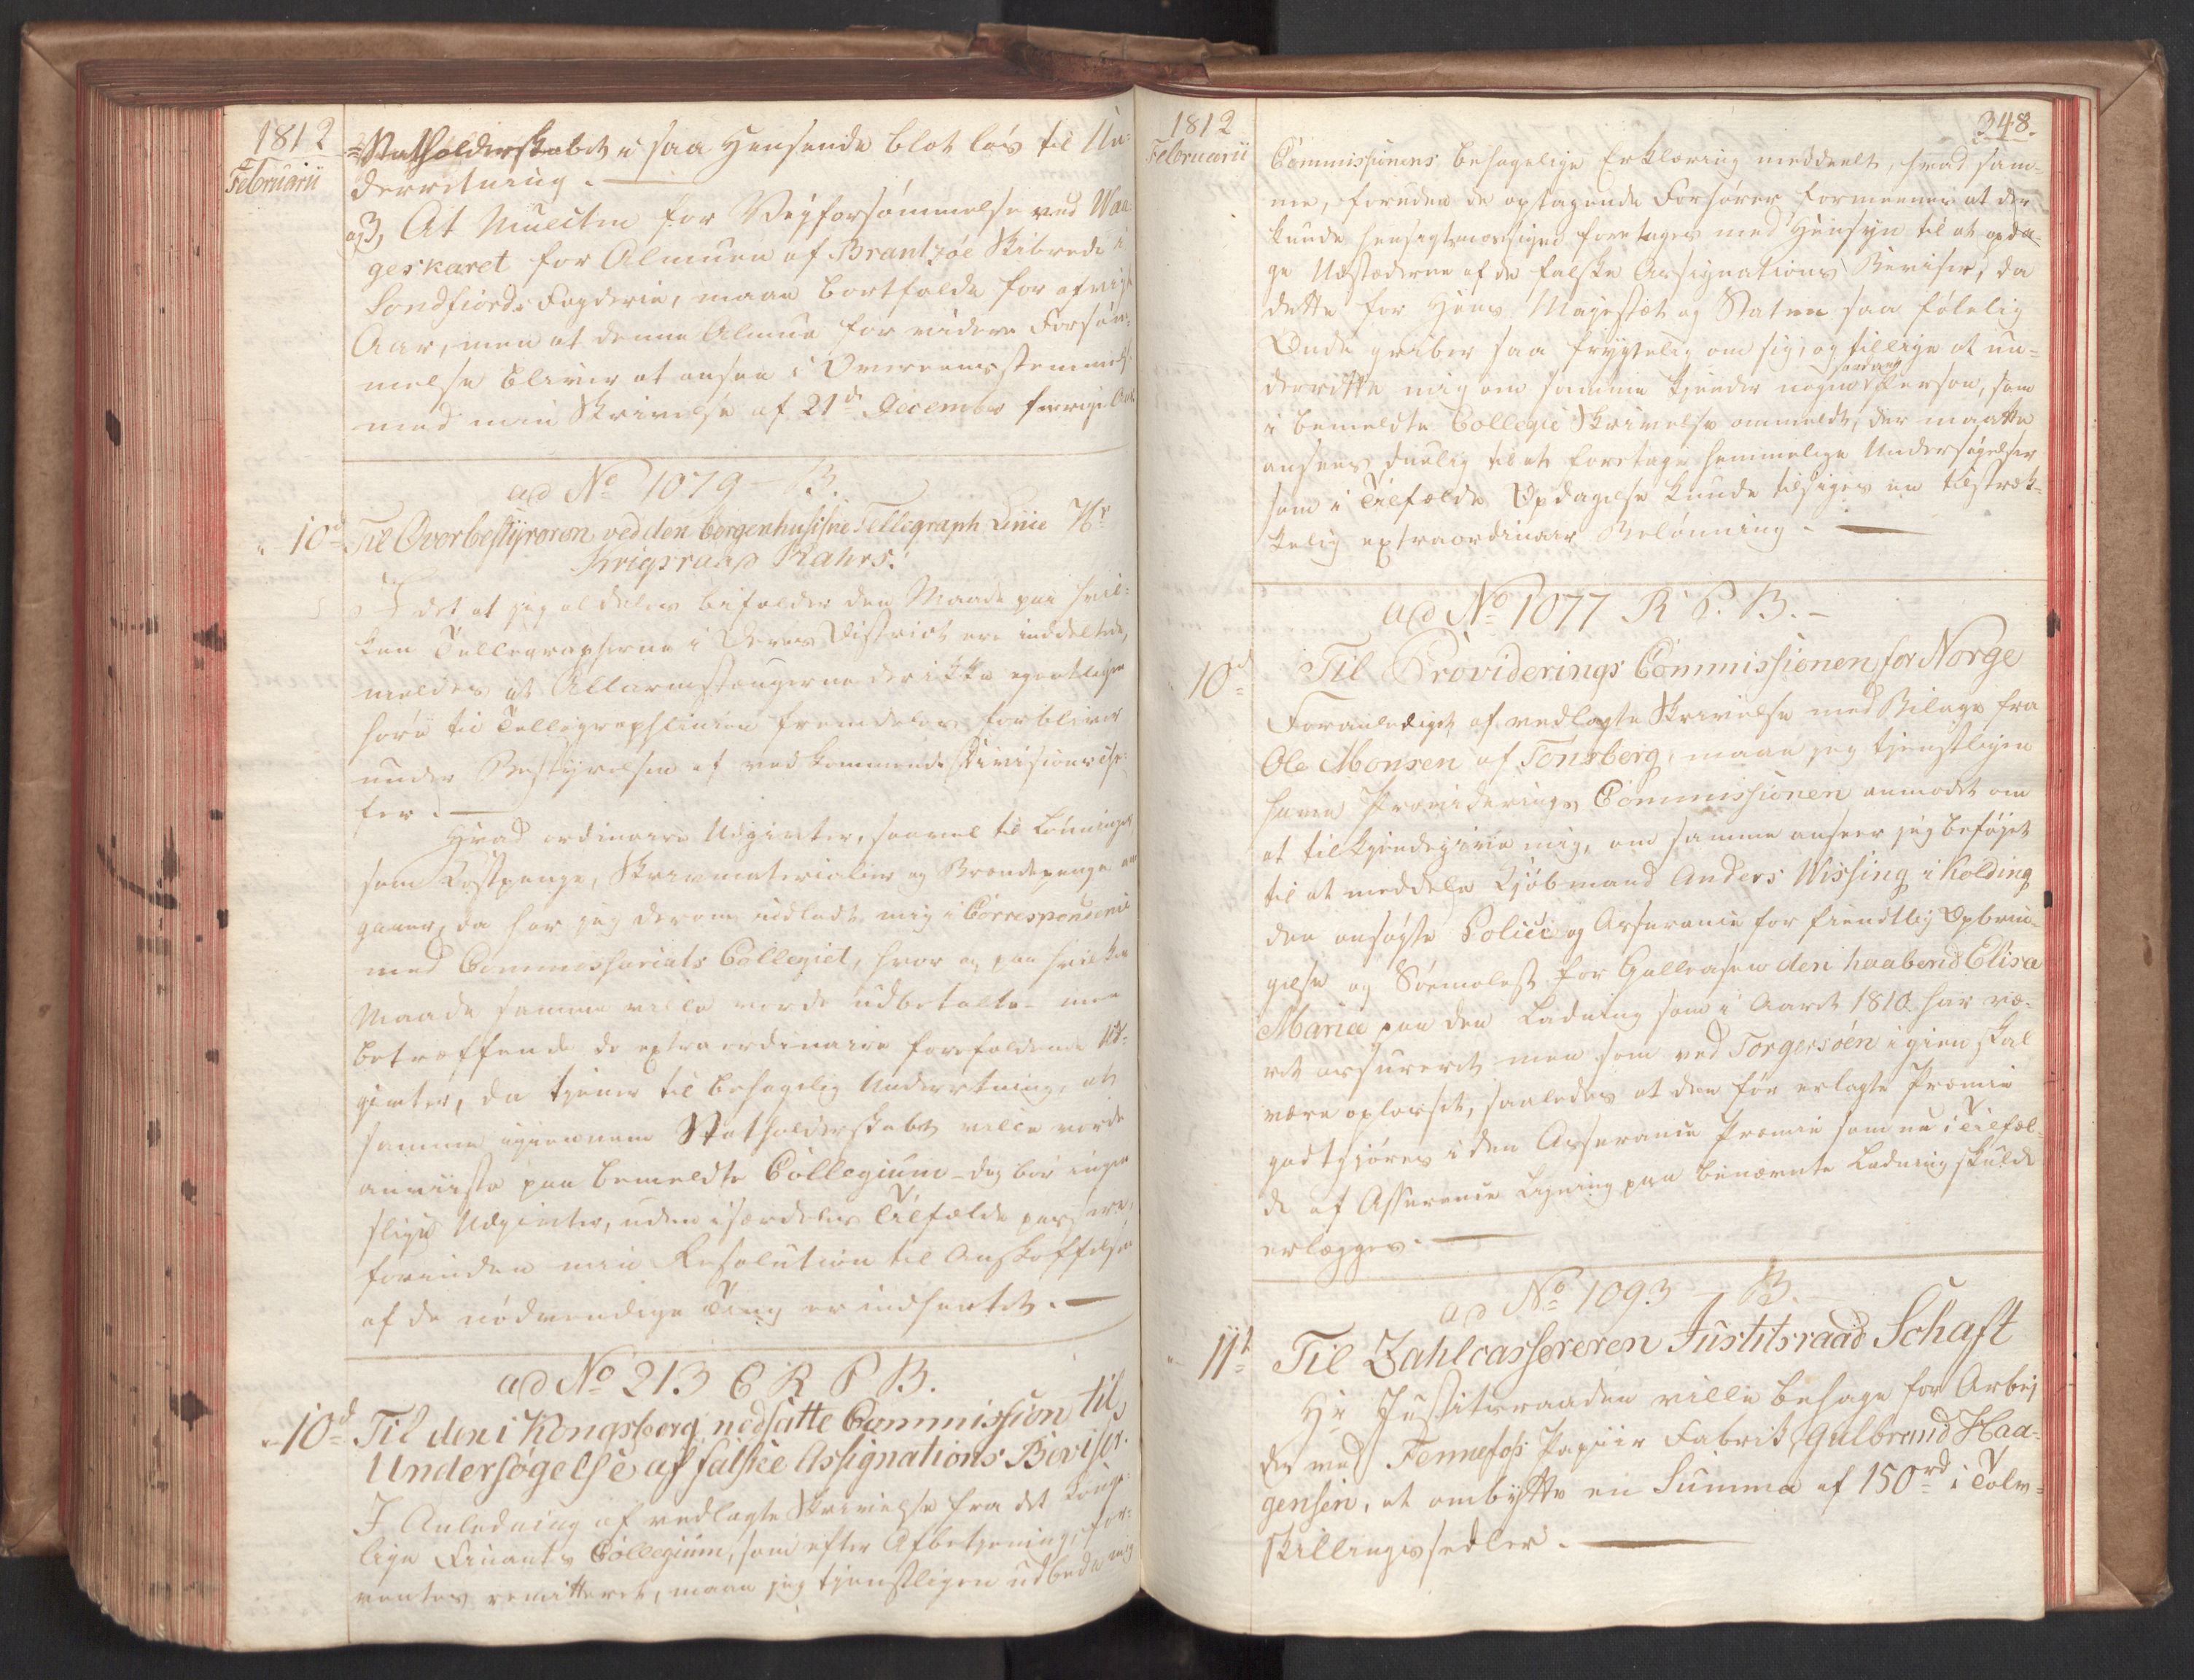 1812
Februarii
Statholderskabet i saa Henseende blot løs til Un-
derretning. —
og 3, At Mulcten for Veÿforsømmelse ved Waa-
geskaret for Almuen af Brantzöe Skibrede i
Søndfiords Fogderie, maae bortfalde for afvigte
Aar, men at denne Almue for videre Forsøm-
melse bliver at ansee i Overeensstemmelse
med min Skrivelse af 21de December forrige Aar
ad No 1079 — B.
10d Til Overbestÿreren ved den bergenhusiske Tellegraph Linie Hr
Krigsraad Rahrs.
I det at jeg aldeles bifalder den Maade paa hvil-
ken Tellegrapherne i Deres District ere inddeelte,
meldes at Allarmstængerne der ikke egentligen
høre til Tellegraphlinien fremdeles forbliver
under Bestyrelsen af vedkommende Divisionsche-
fer. —
Hvad ordinaire Udgivter, saavel til Lønninger,
som Kostpenge, Skrivmaterialier og Brændepenge an-
gaaer, da har jeg derom indladt mig i Correspondence
med Commissariats Collegiet, hvor og paa hvilken
Maade samme ville vorde udbetalte – men
betræffende de extraordinaire forefaldende Ud-
givter, da tjener til behagelig Underretning, at
samme igiennem Statholderskabet ville vorde
anviiste paa bemeldte Collegium – dog bør ingen
slige Udgivter, uden i særdeles Tilfælde passere,
forinden min Resolution til Anskaffelsen
af de nødvendige Ting er indhentet. —
ad No 213 C R P B.
10d Til den i Kongsberg nedsatte Commission til
Undersögelse af falske Assignations Beviser.
I Anledning af vedlagte Skrivelse fra det Konge-
lige Finants Collegium, som efter Afbetjening, for-
ventes remitteret, maae jeg tjenstligen udbede mig
1812
Februarii
348.
Commissionens behagelige Erklæring meddeelt, hvad sam-
me, foruden de optagende Forhører formeener at der
kunde hensigtsmæssigen foretages med Hensyn til at opda-
ge Udstæderne af de falske Assignations Beviser, da
dette for Hans Majestæt og Staten saa følelig
Onde griber saa frygtelig om sig, og tillige at un-
derrette mig om samme kjender nogen saadan Person, som
i bemeldte Collegie Skrivelse ommeldt, der maatte
ansees duelig til at foretage hemmelige Undersøgelser
som i Tilfælde Opdagelse kunde tilsiges en tilstræk-
kelig extraordinair Belønning. —
ad No 1077 R P. B. —
10d Til Providerings Commissionen for Norge
Foranlediget af vedlagte Skrivelse med Bilage fra
Ole Monsen af Tonsberg, maae jeg tjenstligen
have Provideringss Commissionen anmodet om
at tilkjendegive mig, om samme anseer sig beføjet
til at meddele Kjøbmand Anders Wissing i Kolding
den ansøgte Police og Assurance for fiendtlig Opbrin-
gelse og Söemolest for Galleasen den haabend Elisa
Maria paa den Ladning som i Aaret 1810 har væ-
ret assureret men som ved Torgersöen igien skal
være oplosset, saaledes at den før erlagte Præmie
godtgjøres i den Assurance Præmie som nu i Tilfæl-
de af Assurance Tegning paa benævnte Ladning skulde
erlægges. —
ad No 1093 — B.
11t Til Zahlcassereren Justitsraad Schaft
Hr Justitsraaden ville behage for Arbej-
der ved Fennefos Papiir Fabrik, Gulbrand Haa-
gensen, at ombytte en Summa af 150rd i Tolv-
skillingssedler. —